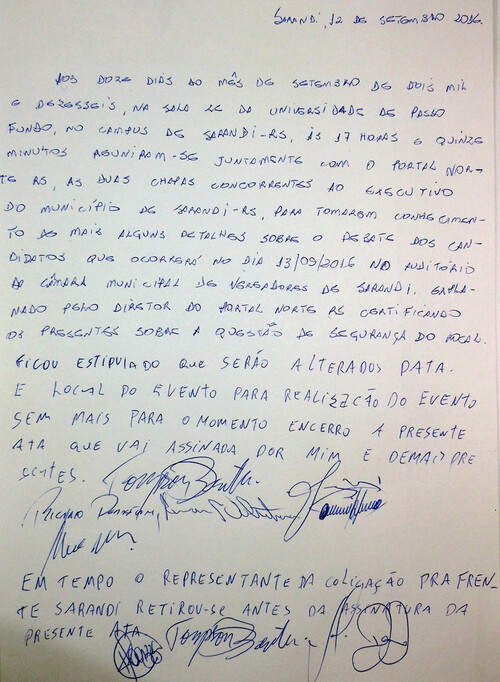 SARANDI, 12 DE SETEMBRO 2016.
AOS DOZE DIAS DO MÊS DE SETEMBRO DE DOIS MIL
E DEZESSEIS, NA SALA DA UNIVERSIDADE DE PASSO
FUNDO, NO CAMPUS DE SARANDI-RS, ÀS 17 HORAS E QUINZE
MINUTOS REUNIRAM-SE JUNTAMENTE COM O PORTAL NOR-
TE RS, AS DUAS CHAPAS CONCORRENTES AO EXECUTIVO
DO MUNICÍPIO DE SARANDI-RS, PARA TOMAREM CONHECIMEN-
TO DE MAIS ALGUNS DETALHES SOBRE O DEBATE DOS CAN-
DIDATOS QUE OCORRERÁ NO DIA 13/09/2016 NO AUDITÓRIO
DA CÂMARA MUNICIPAL DE VEREADORES DE SARANDI. EXPLA-
NADO PELO DIRETOR DO PORTAL NORTE RS CERTIFICANDO
OS PRESENTES SOBRE A QUESTÃO DE SEGURANÇA DO LOCAL.
FICOU ESTIPULADO QUE SERÃO ALTERADOS DATA.
E LOCAL DO EVENTO PARA REALIZAÇÃO DO EVENTO
SEM MAIS PARA O MOMENTO ENCERRO A PRESENTE
ATA QUE VAI ASSINADA POR MIM E DEMAIS PRE
SENTES.
EM TEMPO O REPRESENTANTE DA COLIGAÇÃO PRA FREN-
TE SARANDI RETIROU-SE ANTES DA ASSINATURA DA
PRESENTE ATA